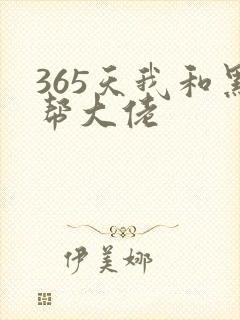 365天我和黑
帮大佬
伊美娜